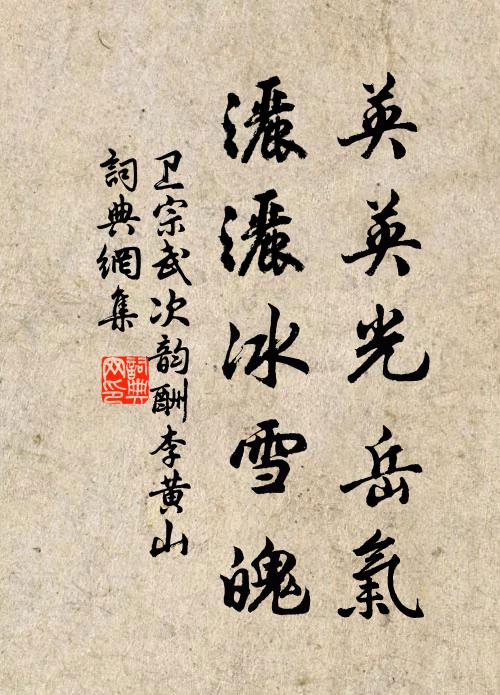 英英光岳氣
灑灑冰雪魄
卫宗武次韵酬李黄山
詞典網集
詞典
网印